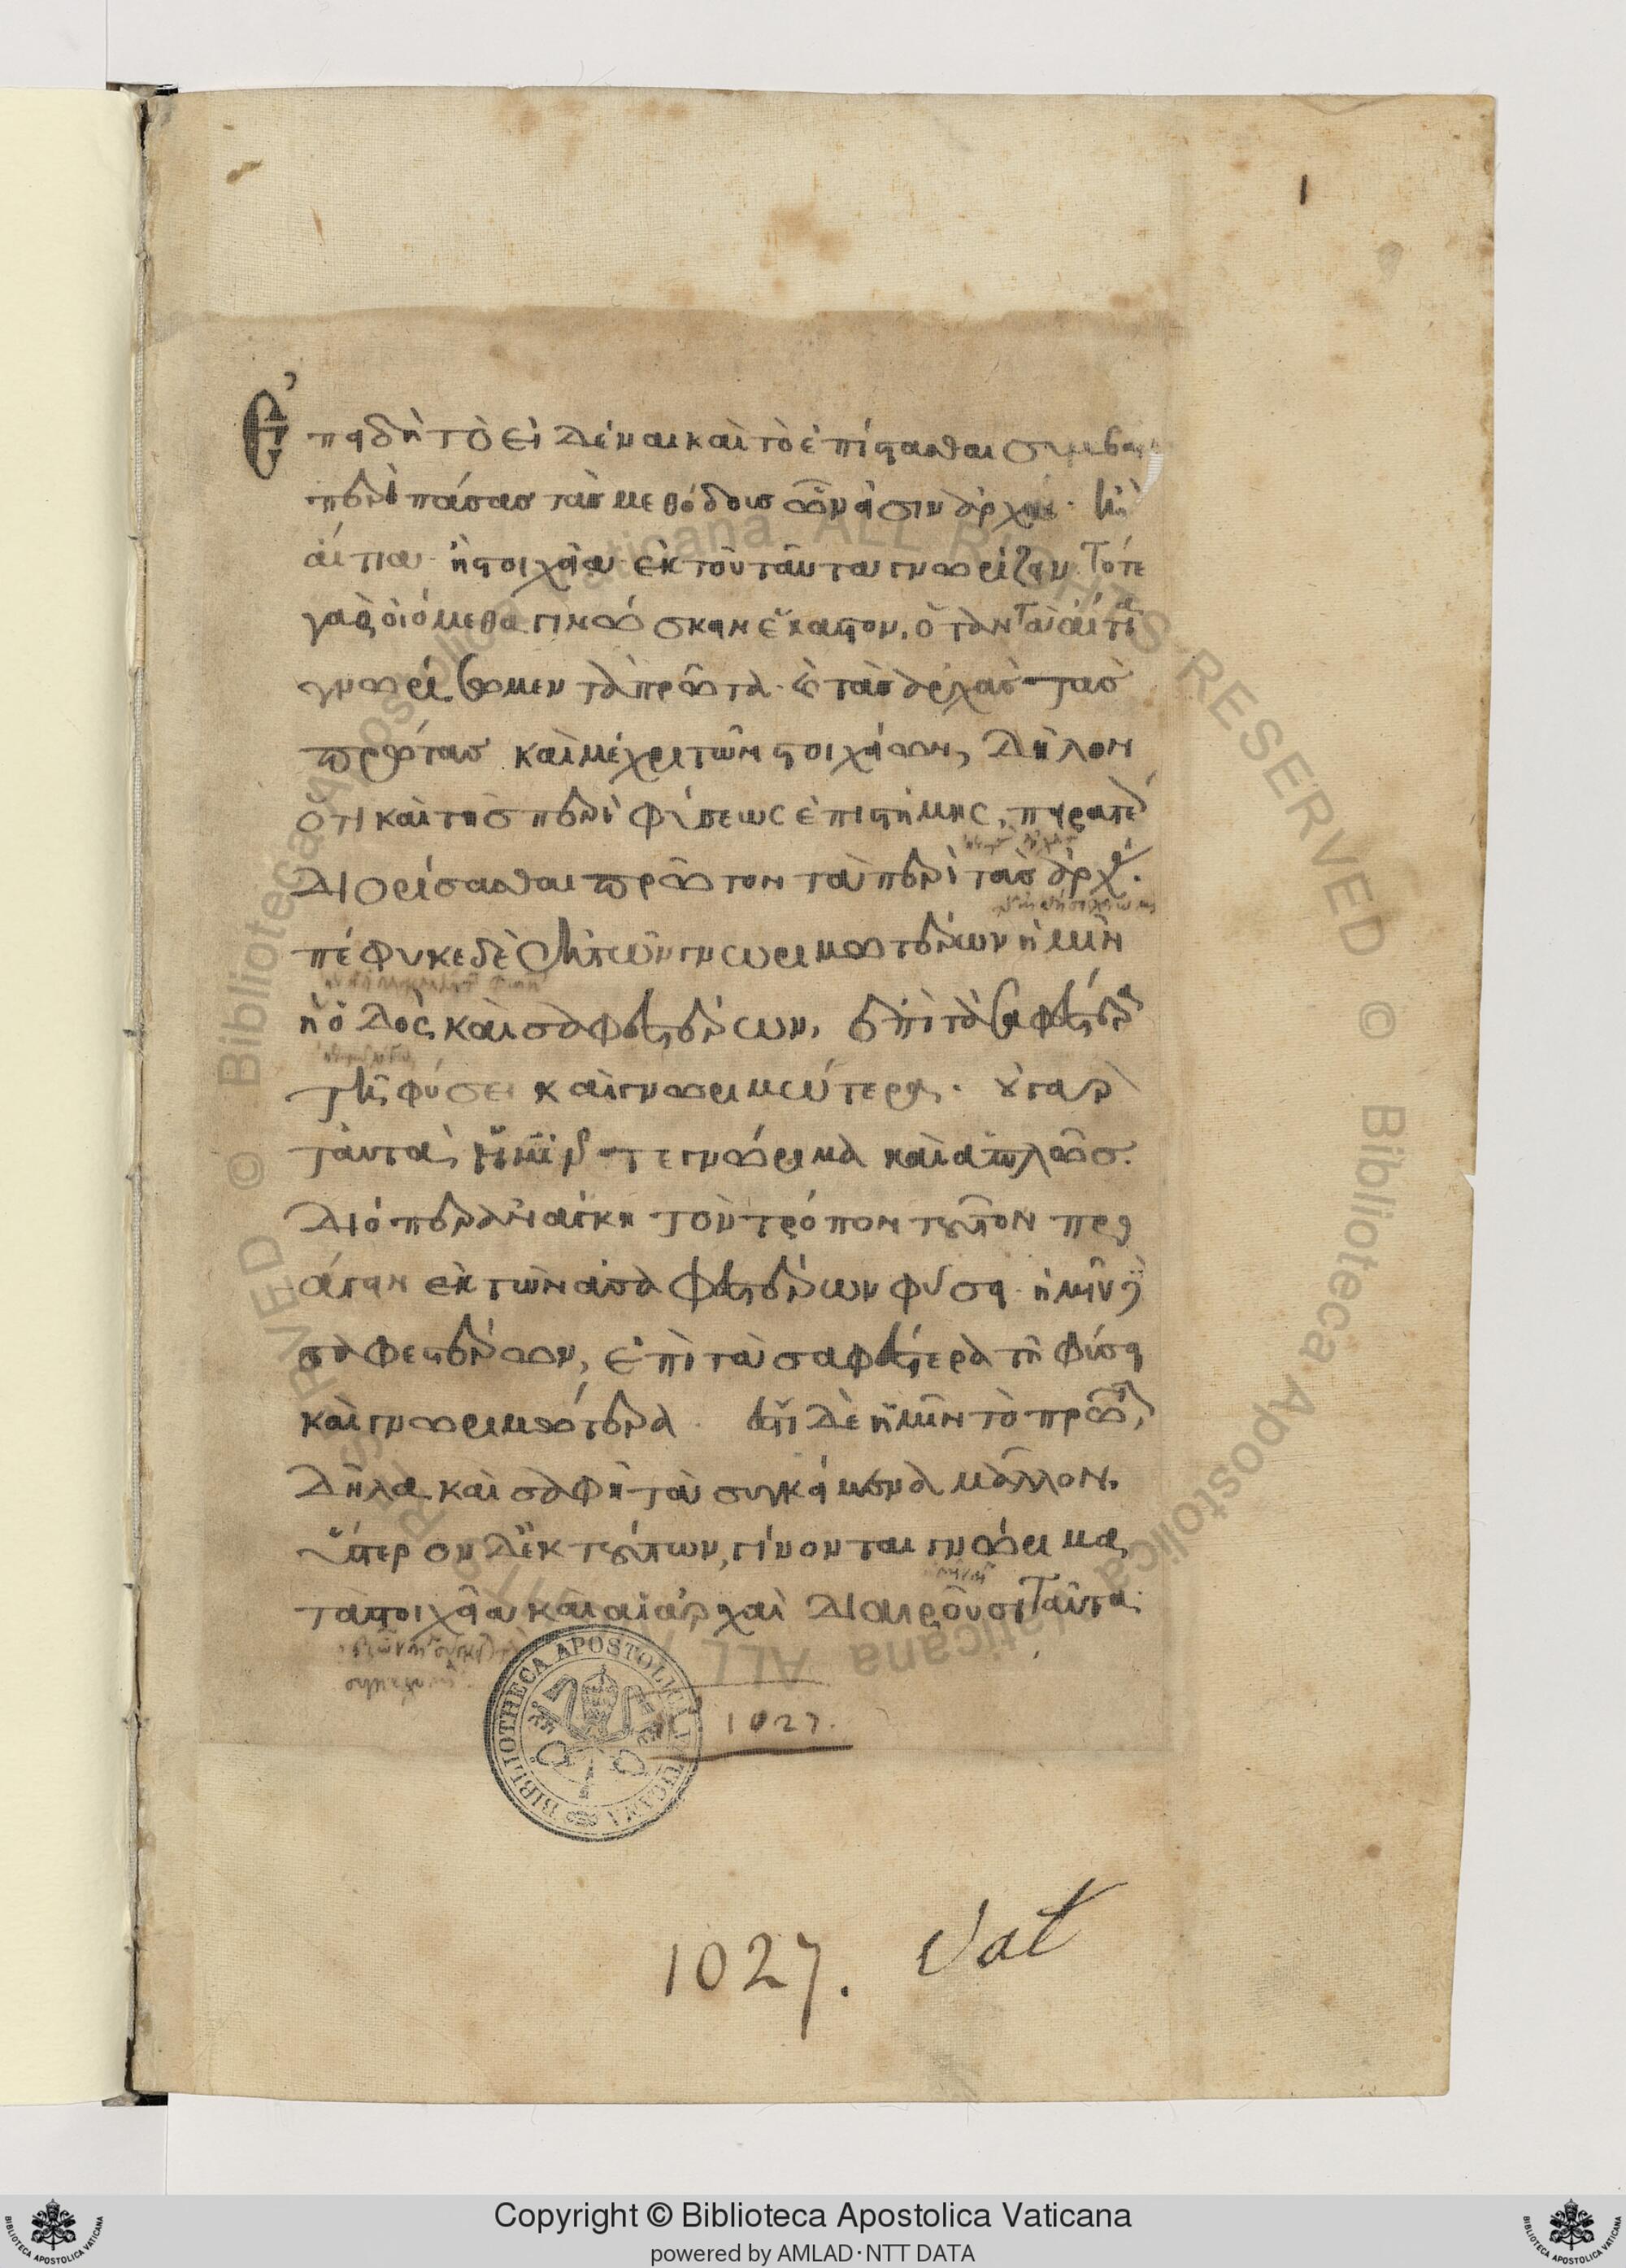 1
Ἐπειδὴ τὸ εἰδέναι καὶ τὸ ἐπίστασθαι συμβαίνει
περὶ πάσας τὰς μεθόδους ὧν εἰσιν ἀρχαὶ ἢ
αἴτια ἢ στοιχεῖα ἐκ τοῦ ταῦτα γνωρίζειν. Τότε
γὰρ οἰόμεθα γινώσκειν ἕκαστον, ὅταν τὰ αἴτια
γνωρίσωμεν τὰ πρῶτα καὶ τὰς ἀρχὰς τὰς
πρώτας καὶ μέχρι τῶν στοιχείων, δῆλον
ὅτι καὶ τῆς περὶ φύσεως ἐπιστήμης, πειρατέον
διορίσασθαι πρῶτον τὰ περὶ τὰς ἀρχάς.
πέφυκε δὲ ἐκ τῶν γνωριμωτέρων ἡμῖν
ἡ ὁδὸς καὶ σαφεστέρων, ἐπὶ τὰ σαφέστερα
τῇ φύσει καὶ γνωριμώτερα. οὐ γὰρ
ταὐτὰ ἡμῖν τε γνώριμα καὶ ἁπλῶς.
Διόπερ ἀνάγκη τὸν τρόπον τοῦτον προ
άγειν ἐκ τῶν ἀσαφεστέρων φύσει ἡμῖν δὲ
σαφεστέρων, ἐπὶ τὰ σαφέστερα τῇ φύσει
καὶ γνωριμώτερα. ἔστι δὲ ἡμῖν τὸ πρῶτον
δῆλα καὶ σαφῆ τὰ συγκείμενα μᾶλλον.
ὕστερον δ' ἐκ τούτων, γίνονται γνώριμα
τὰ στοιχεῖα καὶ αἱ ἀρχαὶ διαιροῦσι ταῦτα·
1027.
BIBLIOTHECA APOSTOLICA VATICANA
1027. Vat
© Biblioteca Apostolica Vaticana ALL RIGHTS RESERVED © Biblioteca Apostolica Vaticana ALL RIGHTS RESERVED
Copyright © Biblioteca Apostolica Vaticana
powered by AMLAD·NTT DATA